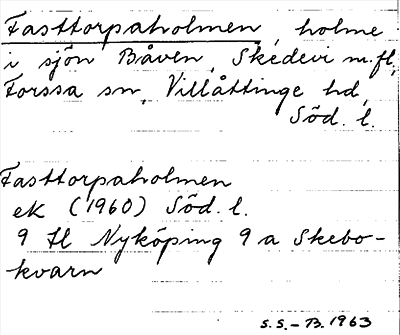 Fasttorpaholmen, holme
i sjön Båven, Skedevi m.fl,
Forssa sn, Villåttinge hd,
Söd. l.
Fasttorpaholmen
ek (1960) Söd. l.
9 H Nyköping 9 a Skebo-
kvarn
S.S.-B. 1963